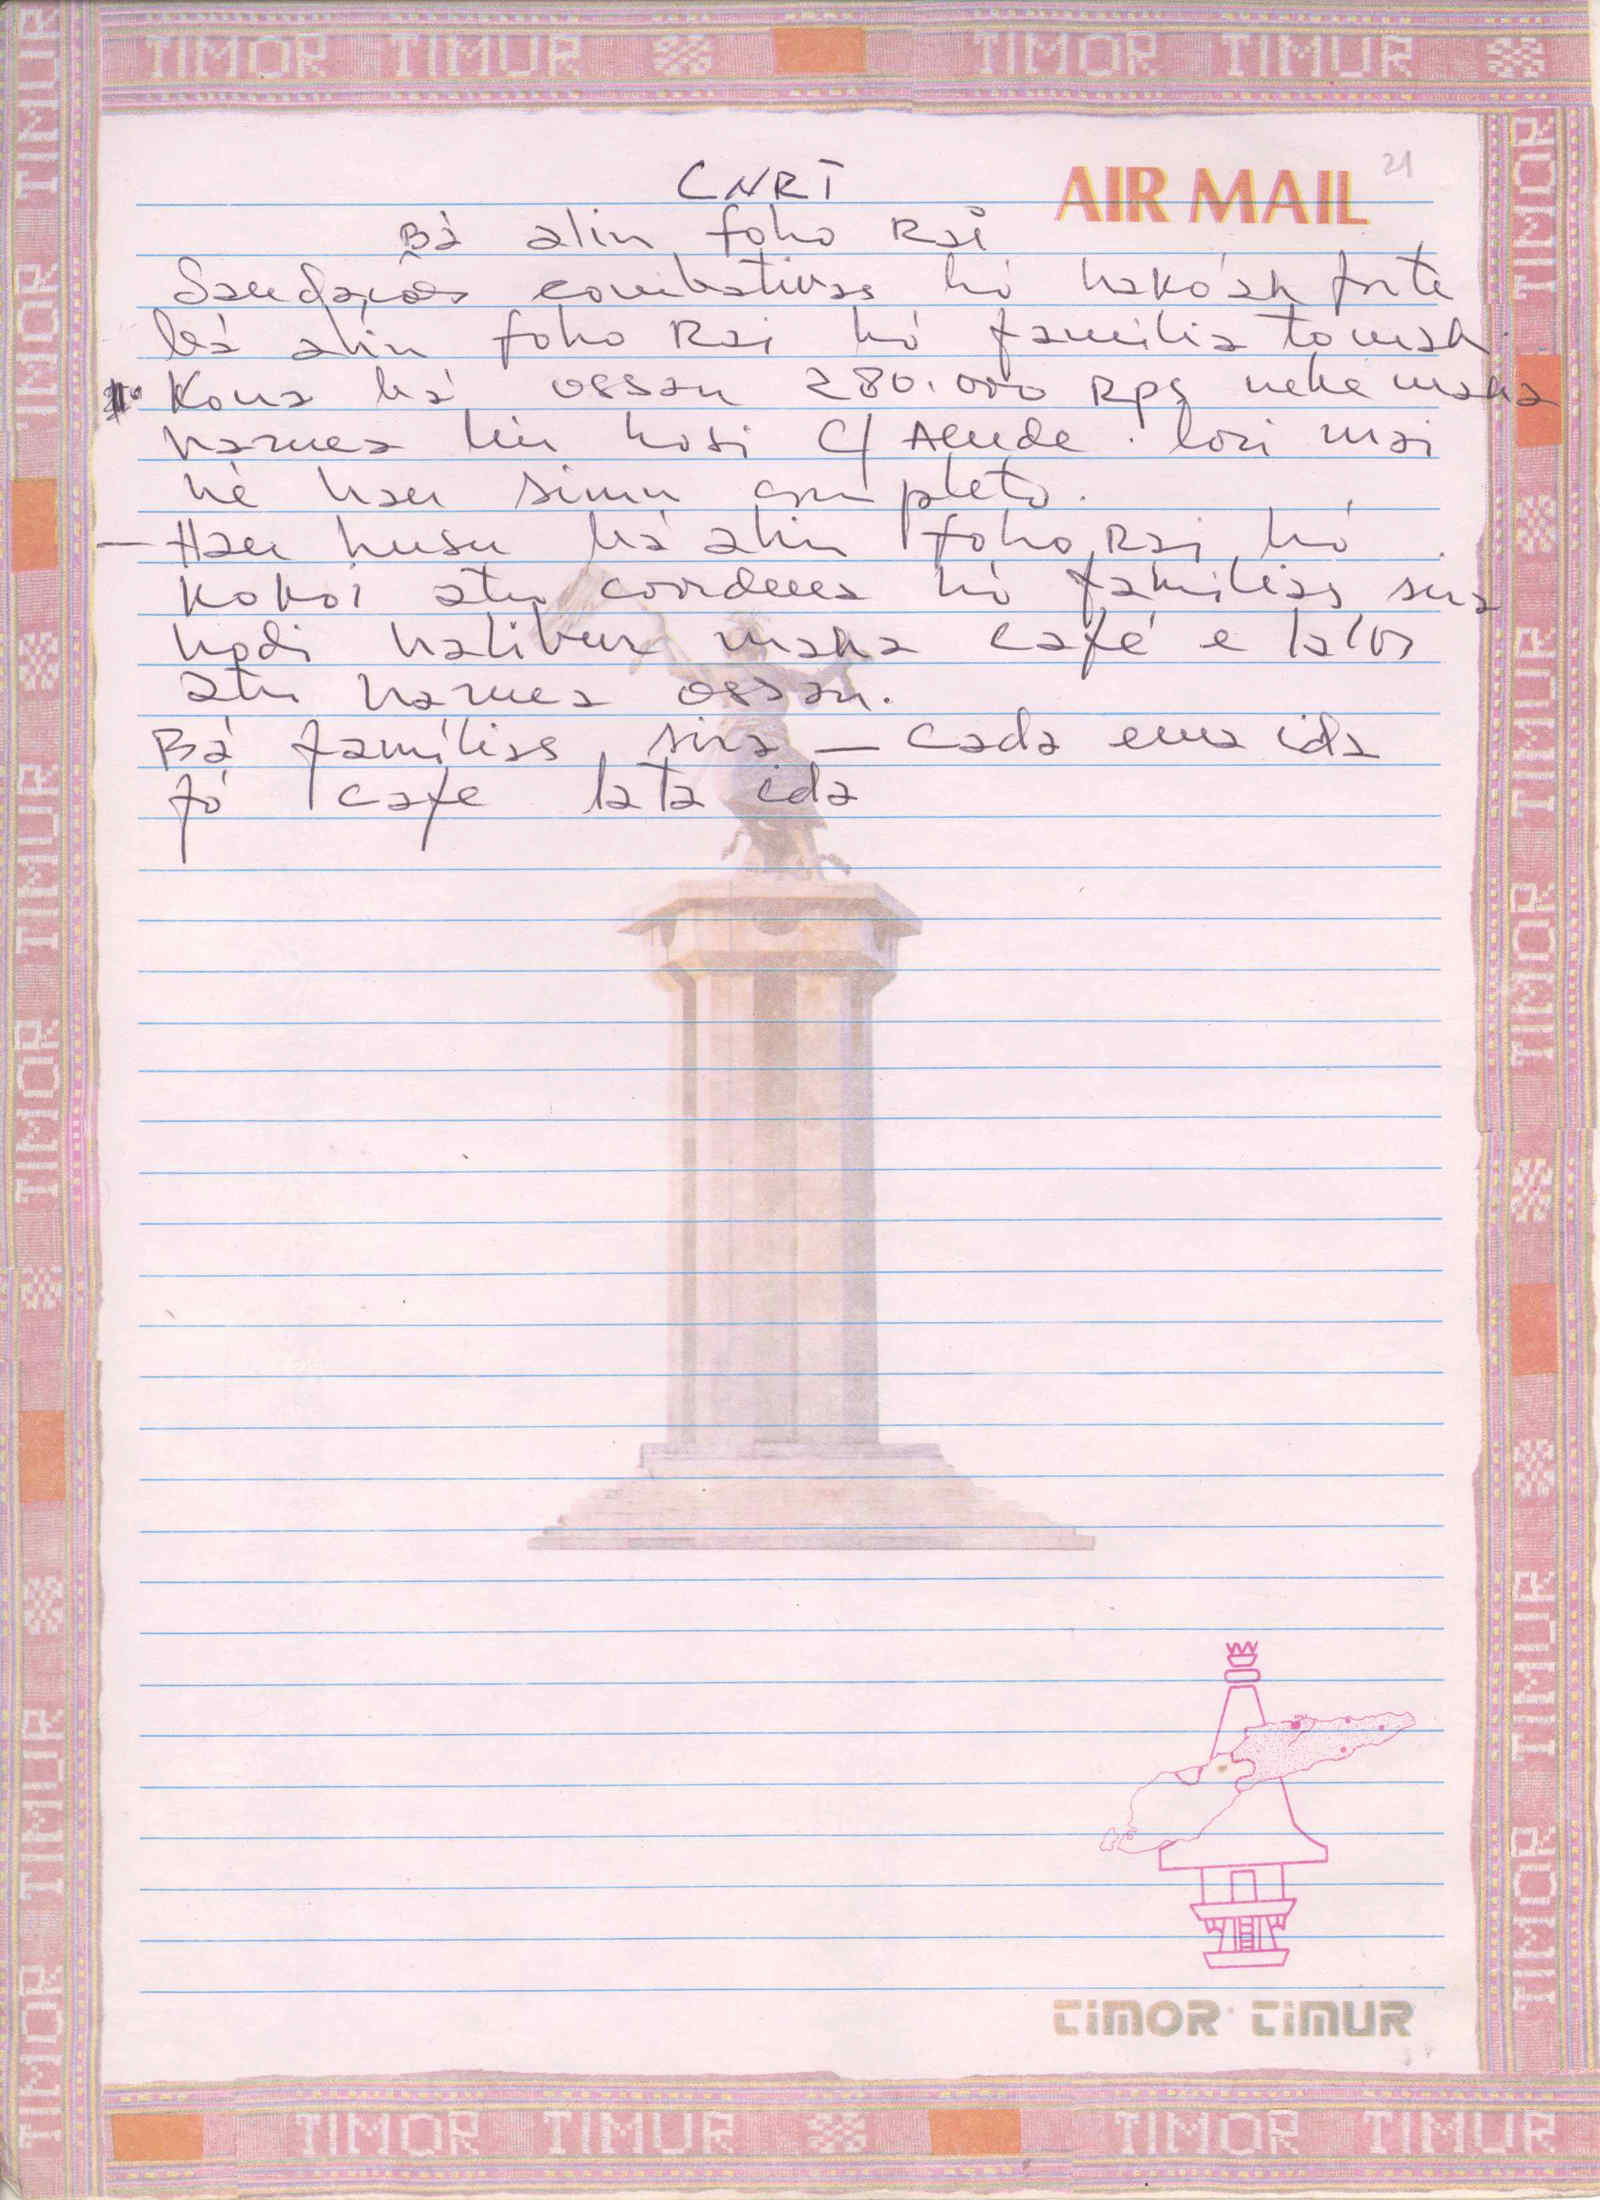 TIMOR TIMUR TIMOR TIMUR
AIR MAIL
21
CNRT
Bá alin foho Rai
Saudações combativas hó hakóak forte
bá alin foho Rai hó familia tomak.
Kona bá ossan 280.000 Rps nebe maka
harúca liu hosi C/ lori mai
né hau simu completo.
— Hau husu bá alin foho Rai hó
kokoi atu coordena hó familias sira
hodi halibur maka café e
atu haruca ossan.
Bá famílias sira — Cada ema ida
fó café lata ida
TIMOR TIMUR
TIMOR TIMUR TIMOR TIMUR
TIMUR TIMOR TIMUR TIMOR TIMUR TIMOR TIMUR TIMOR
TIMOR TIMUR TIMOR TIMUR TIMOR TIMUR TIMOR